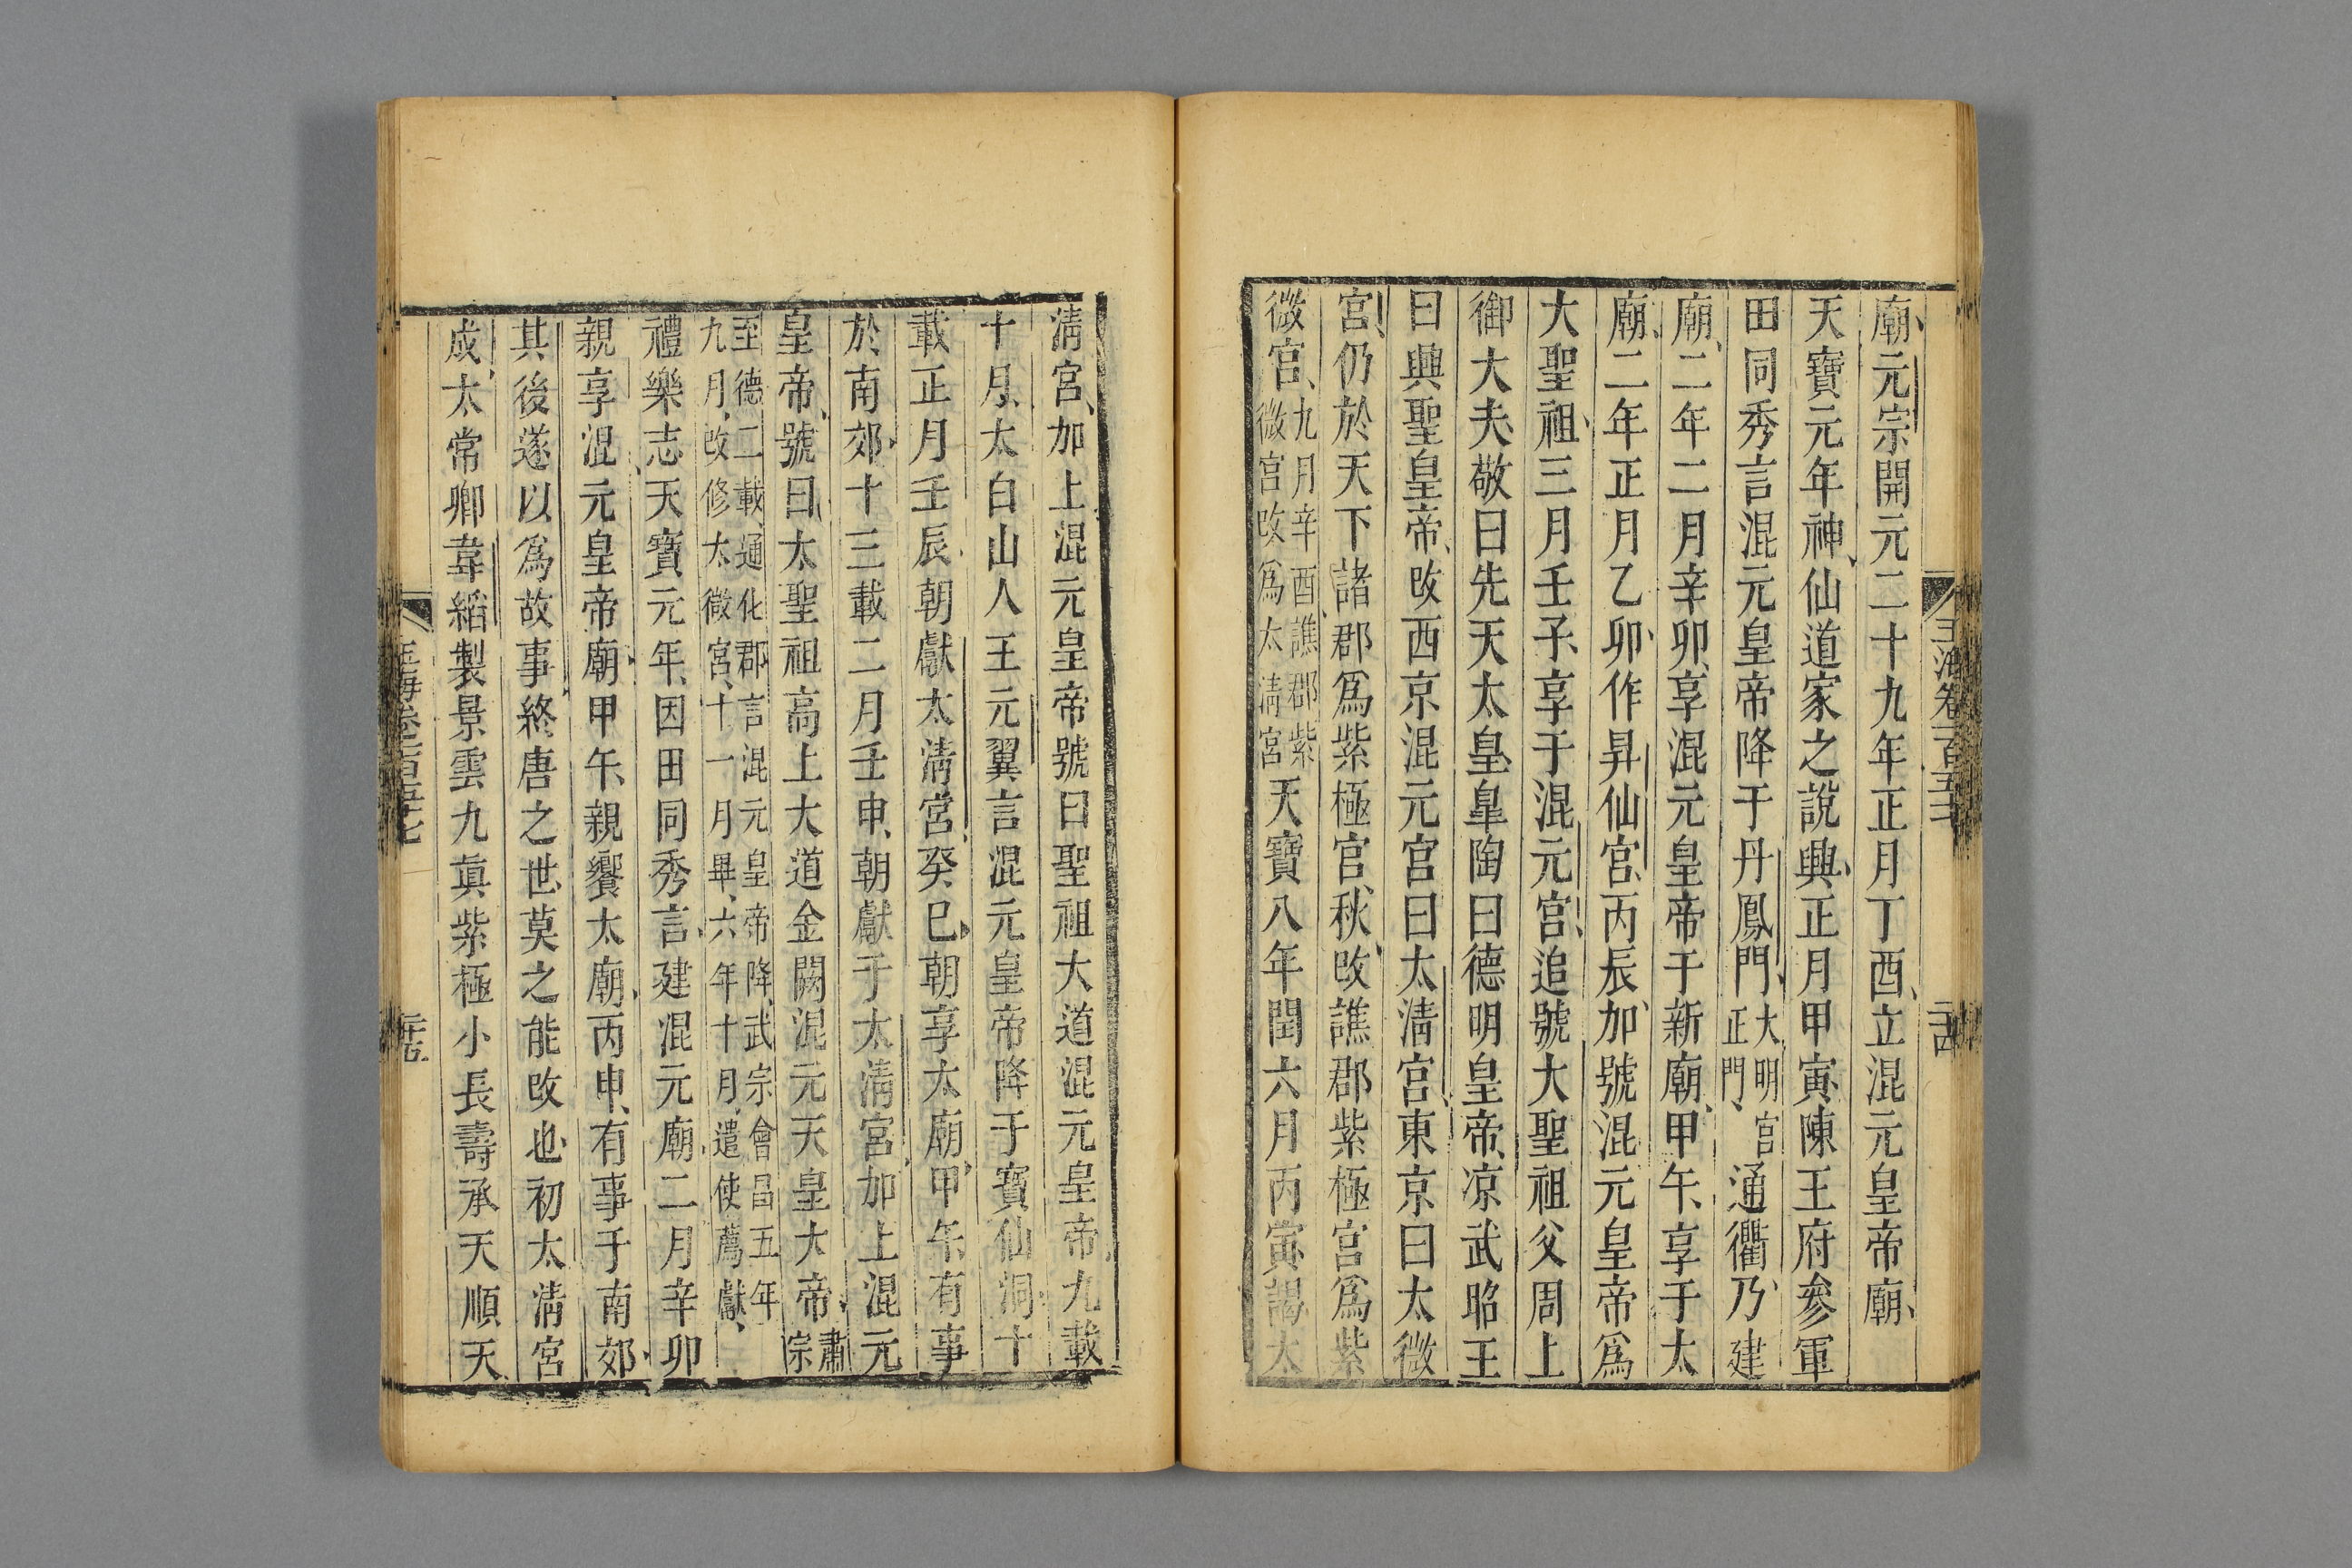 廟元宗開元二十九年正月丁酉立混元皇帝廟
天寶元年神仙道家之說興正月甲寅陳王府參軍
田同秀言混元皇帝降于丹鳳門大明宮正門通衢乃建
廟二年二月辛卯享混元皇帝于新廟甲午享于太
廟二年正月乙卯作昇仙宮丙辰加號混元皇帝爲
大聖祖三月壬子享于混元宮追號大聖祖父周上
御大夫敬曰先天太皇臯陶曰德明皇帝凉武昭王
曰興聖皇帝改西京混元宮曰太淸宮東京曰太微
宮仍於天下諸郡爲紫極宮秋改譙郡紫極宮爲紫
微宮九月辛酉譙郡紫微宮改爲太淸宮天寶八年閏六月丙寅謁太
淸宮加上混元皇帝號曰聖祖大道混元皇帝九載
十月太白山人王元翼言混元皇帝降于寶仙洞十
載正月壬辰朝獻太淸宮癸巳朝享太廟甲午有事
於南郊十三載二月壬申朝獻于太淸宮加上混元
皇帝號曰太聖祖高上大道金闕混元天皇大帝肅宗
至德二載通化郡言混元皇帝降武宗會昌五年
九月改修太微宮十一月畢六年十月遣使薦獻
禮樂志天寶元年因田同秀言建混元廟二月辛卯
親享混元皇帝廟甲午親饗太廟丙申有事于南郊
其後遂以爲故事終唐之世莫之能改也初太淸宮
成太常卿韋縚製景雲九眞紫極小長壽承天順天